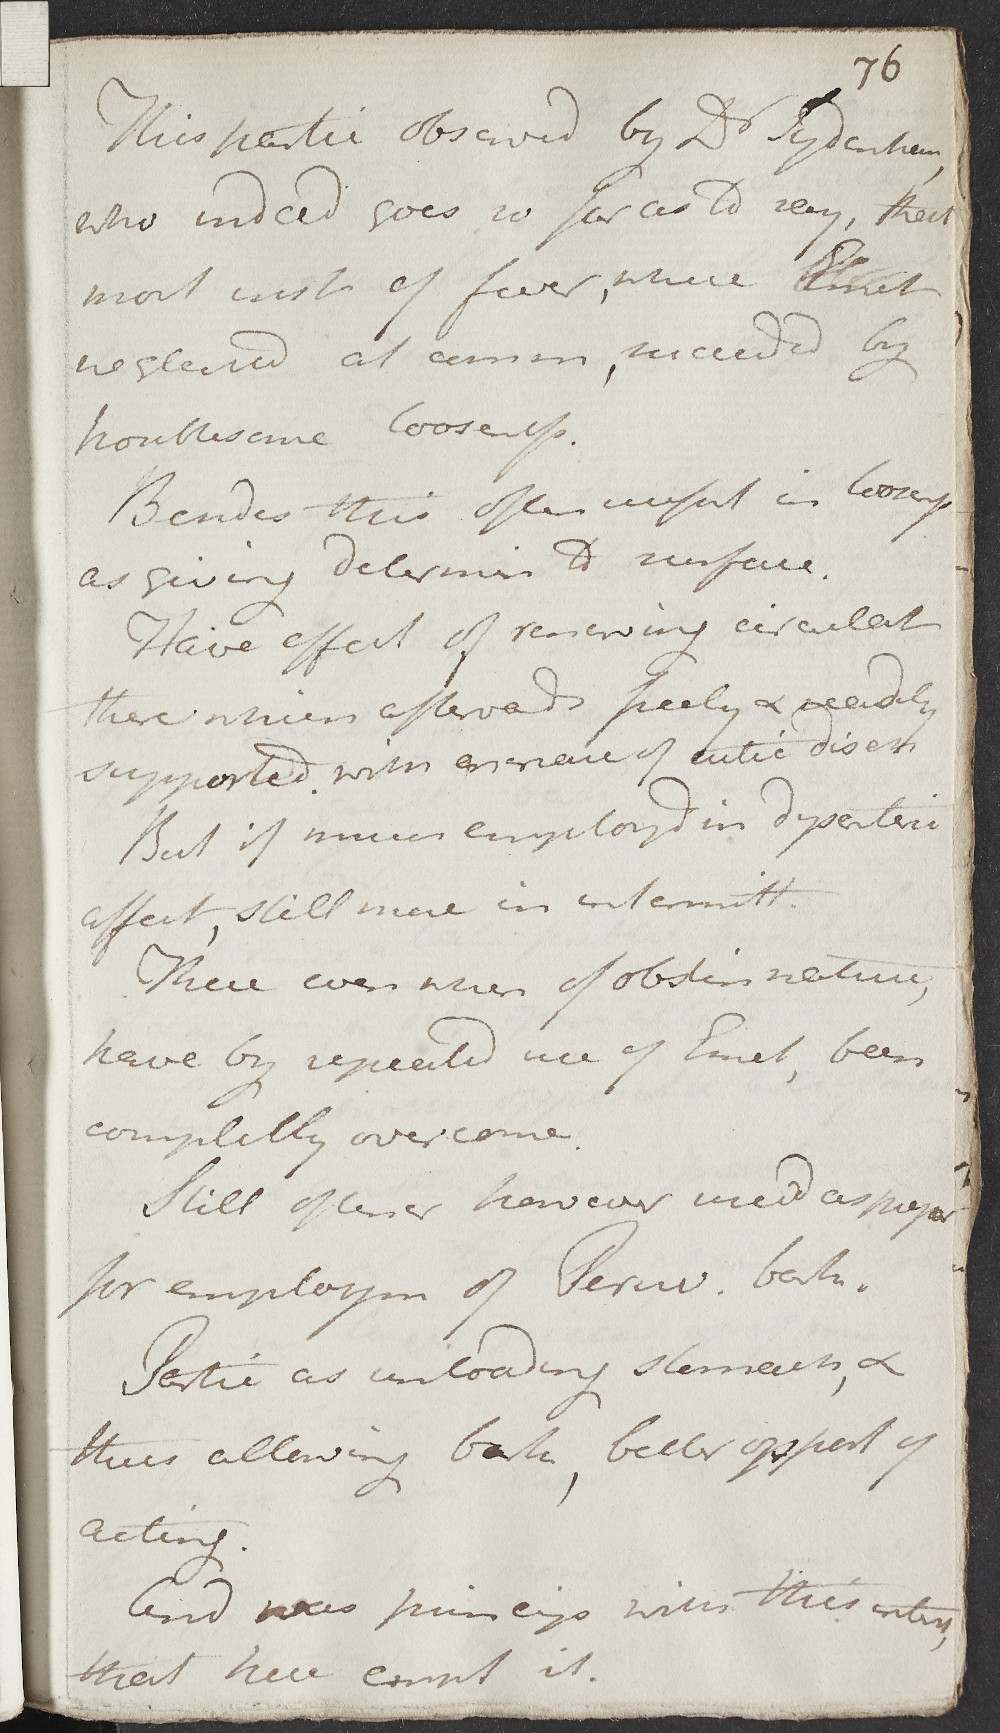 76
This partic observed by Dr Sydenham,
who indeed goes so far as to say, that
most inst of fever, where Emet
neglected at comm, succeeded by
troublesome looseness.
Besides this often useful in looseness
as giving determin to surface.
Have effect of renewing circulat
there which afterwads freely & readily
supported, with increase of cutic disch
But if much employd in dysenteric
affect, still more in intermitt.
These even when of obstin nature,
have by repeated use of Emet, been
completly overcome.
Still oftener however used as prepar
for employm of Peruv. bark.
Partic as unloading stomach, &
thus allowing bark, better opport of
acting.
And was princip with this intent,
that here empl it.